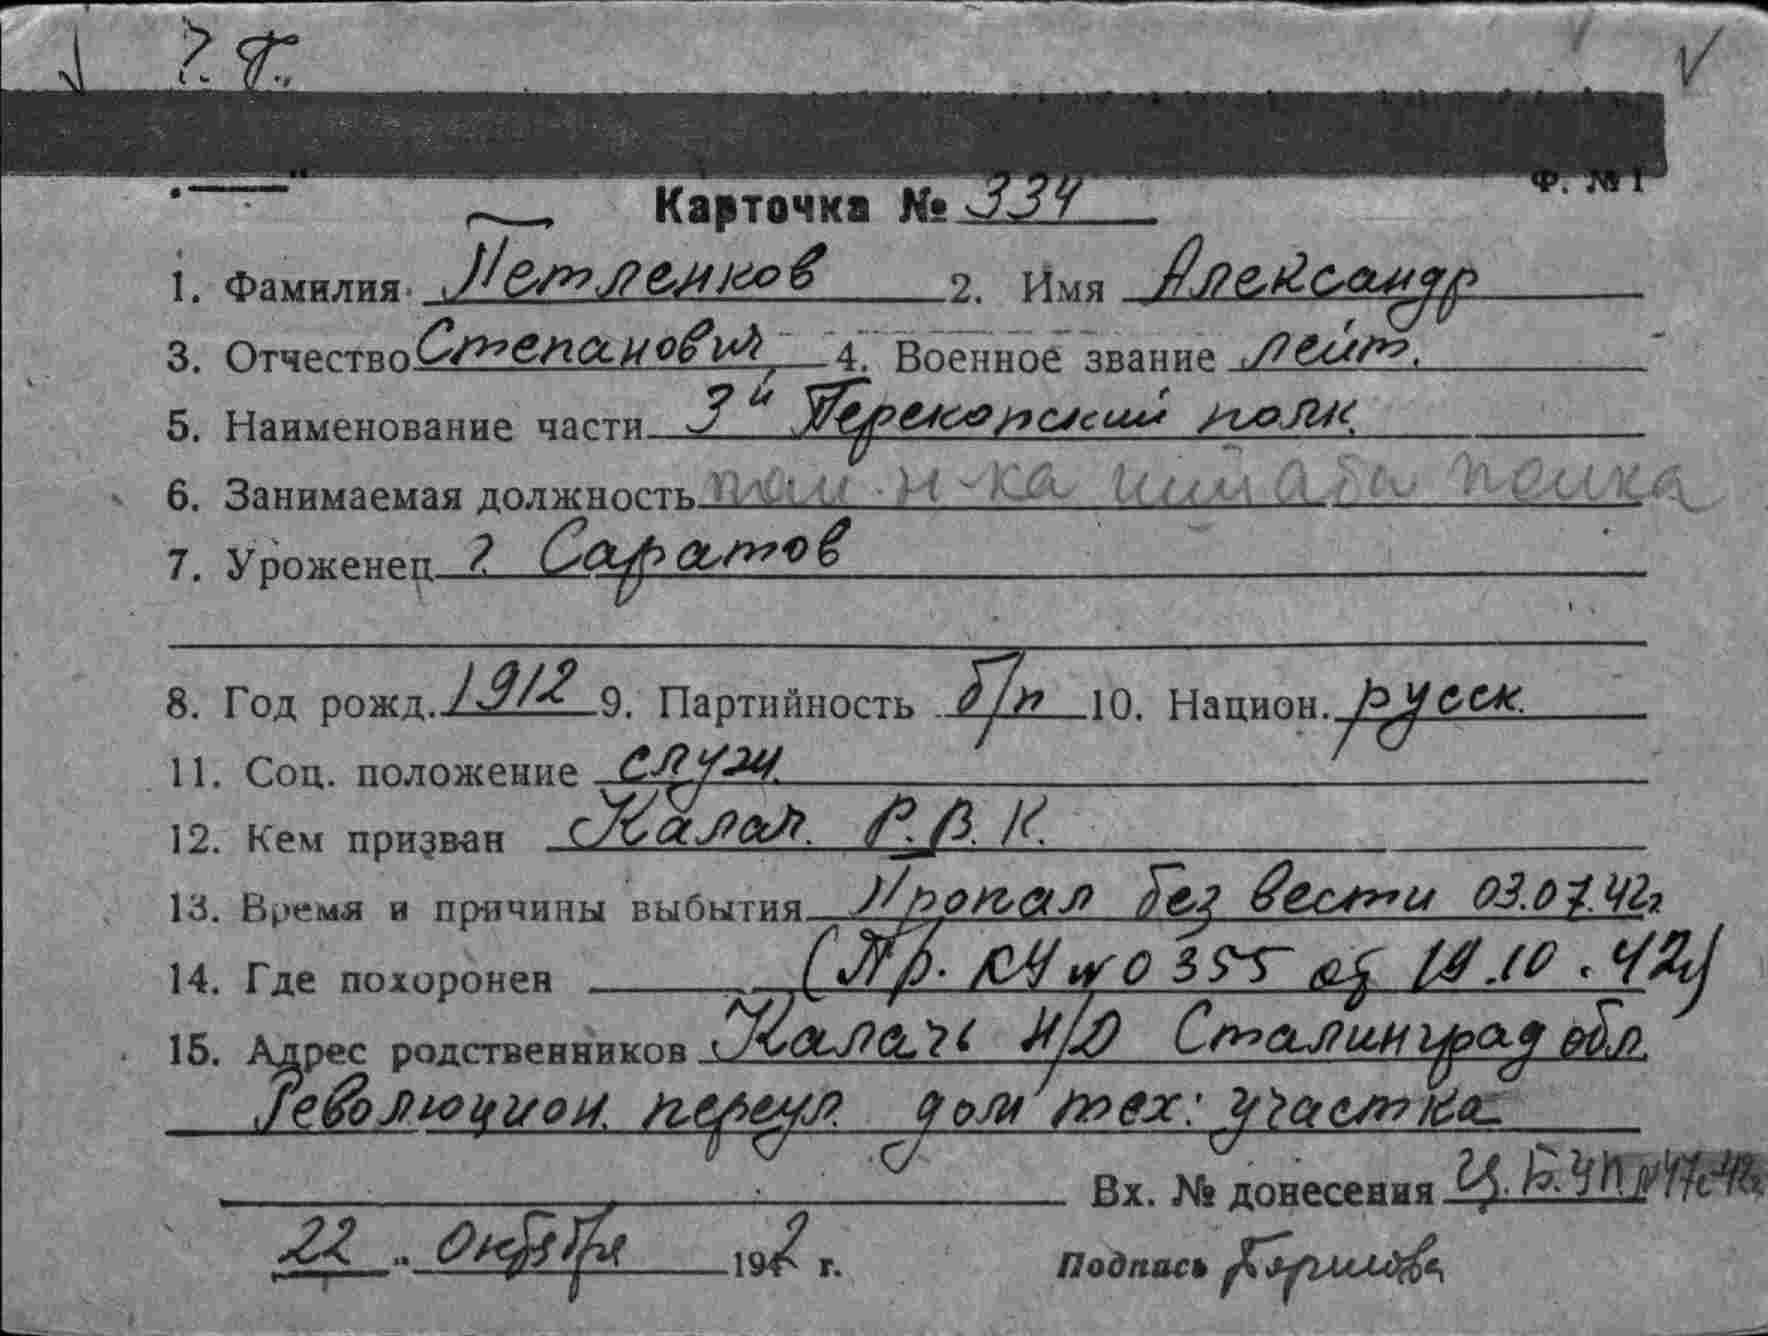 ?. П.,
Ф. № 1
Карточка № 334
1. Фамилия Петленков 2. Имя Александр
3. Отчество Степанович 4. Военное звание лейт.
5. Наименование части 3й Перекопский полк.
6. Занимаемая должность пом. н-ка штаба полка
7. Уроженец г. Саратов
8. Год рожд. 1912 9. Партийность б/п 10. Национ. русск.
11. Соц. положение служ.
12. Кем призван Калач. Р.В.К.
13. Время и причины выбытия Пропал без вести 03.07.42г
14. Где похоронен (Пр. КЧ №0355 от 19.10.42г)
15. Адрес родственников Калач Н/Д Сталинград обл.
Революцион. переул. дом тех: участка
Вх. № донесения
22 " Октября 1942 г. Подпись